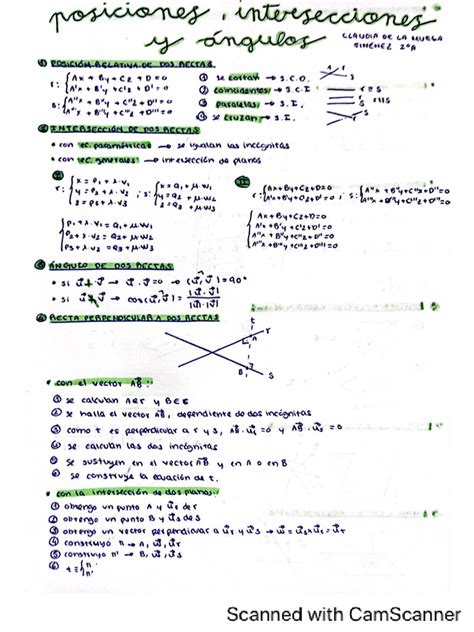 posiciones, intersecciones
y ángulos
CLAUDIA DE LA HUELGA
SÁNCHEZ 2ºA
① POSICIÓN RELATIVA DE DOS RECTAS.
r: { Ax + By + Cz + D = 0
A'x + B'y + C'z + D' = 0
s: { A''x + B''y + C''z + D'' = 0
A'''x + B'''y + C'''z + D''' = 0
① se cortan → S.C.D.
② coincidentes → S.C.I
③ paralelas → S.I.
④ se cruzan → S.I.
r
s
r ≡ s
r
s
r ∥ s
② INTERSECCIÓN DE DOS RECTAS
• con ec. paramétricas → se igualan las incógnitas
• con ec. generales → intersección de planos
r: { x = p₁ + λ·v₁
y = p₂ + λ·v₂
z = p₃ + λ·v₃
; s: { x = q₁ + μ·w₁
y = q₂ + μ·w₂
z = q₃ + μ·w₃
{ p₁ + λ·v₁ = q₁ + μ·w₁
p₂ + λ·v₂ = q₂ + μ·w₂
p₃ + λ·v₃ = q₃ + μ·w₃
r: { Ax + By + Cz + D = 0
A'x + B'y + C'z + D' = 0
; s: { A''x + B''y + C''z + D'' = 0
A'''x + B'''y + C'''z + D''' = 0
{ Ax + By + Cz + D = 0
A'x + B'y + C'z + D' = 0
A''x + B''y + C''z + D'' = 0
A'''x + B'''y + C'''z + D''' = 0
③ ÁNGULO DE DOS RECTAS
• si u ⊥ v → u · v = 0 → (u, v) = 90°
• si → cos(u, v) = |u · v| / |u| · |v|
④ RECTA PERPENDICULAR A DOS RECTAS
t
r
A
B
s
• con el vector AB:
① se calculan A∈r y B∈s
② se halla el vector AB, dependiente de dos incógnitas
③ como t es perpendicular a r y s, AB · ur = 0 y AB · us = 0
④ se calculan las dos incógnitas
⑤ se sustituyen en el vector AB y en A o en B
⑥ se construye la ecuación de t.
• con la intersección de dos planos:
① obtengo un punto A y ur de r
② obtengo un punto B y us de s
③ obtengo un vector perpendicular a ur y us → u = us × ur = ut
④ construyo π → A, u, ur
⑤ construyo π' → B, u, us
⑥ t ≡ { π
π'
Scanned with CamScanner